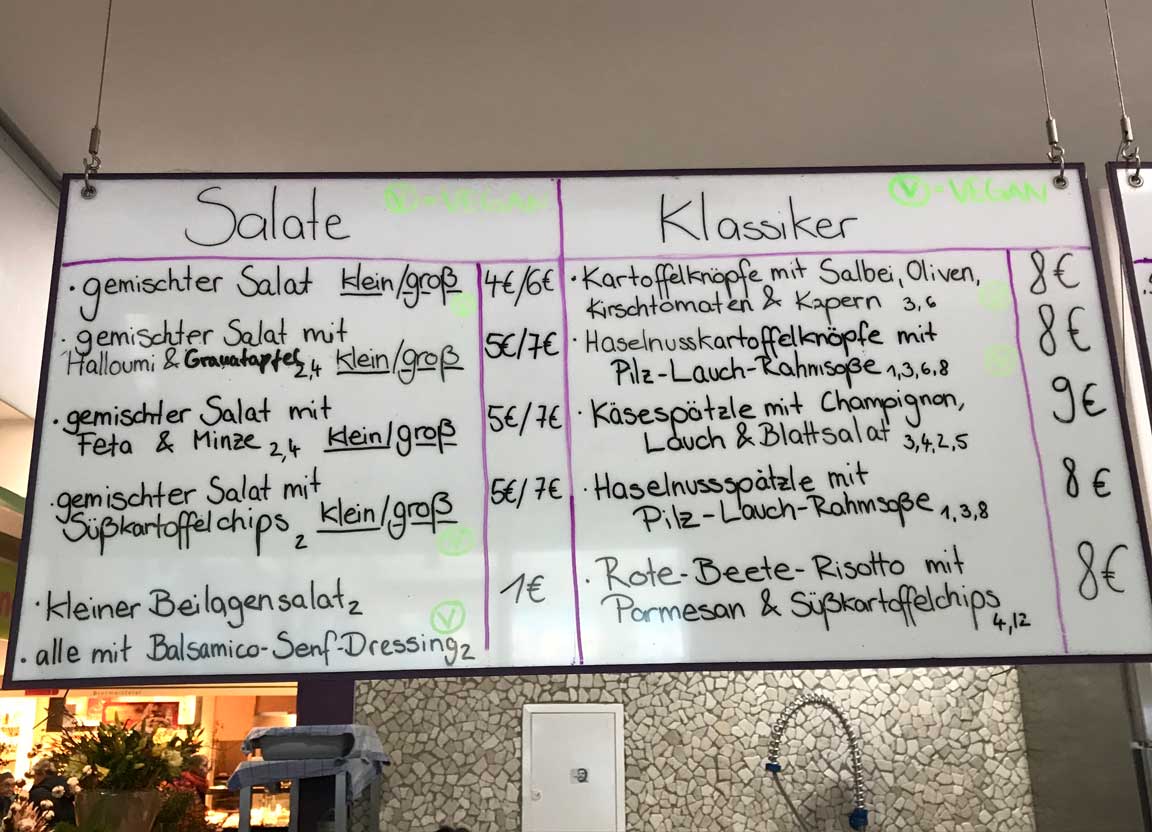 Salate
Ⓥ = VEGAN
· gemischter Salat klein/groß 4€/6€
· gemischter Salat mit
Halloumi & Granatapfel 2,4 klein/groß 5€/7€
· gemischter Salat mit
Feta & Minze 2,4 klein/groß 5€/7€
· gemischter Salat mit
Süßkartoffelchips 2 klein/groß 5€/7€
Ⓥ
· kleiner Beilagensalat 2 1€
Ⓥ
· alle mit Balsamico-Senf-Dressing 2
Klassiker
Ⓥ = VEGAN
· Kartoffelknöpfe mit Salbei, Oliven, 8€
Kirschtomaten & Kapern 3,6
· Haselnusskartoffelknöpfe mit 8€
Pilz-Lauch-Rahmsoße 1,3,6,8
· Käsespätzle mit Champignon, 9€
Lauch & Blattsalat 3,4,2,5
· Haselnussspätzle mit 8€
Pilz-Lauch-Rahmsoße 1,3,8
· Rote-Beete-Risotto mit 8€
Parmesan & Süßkartoffelchips 4,12